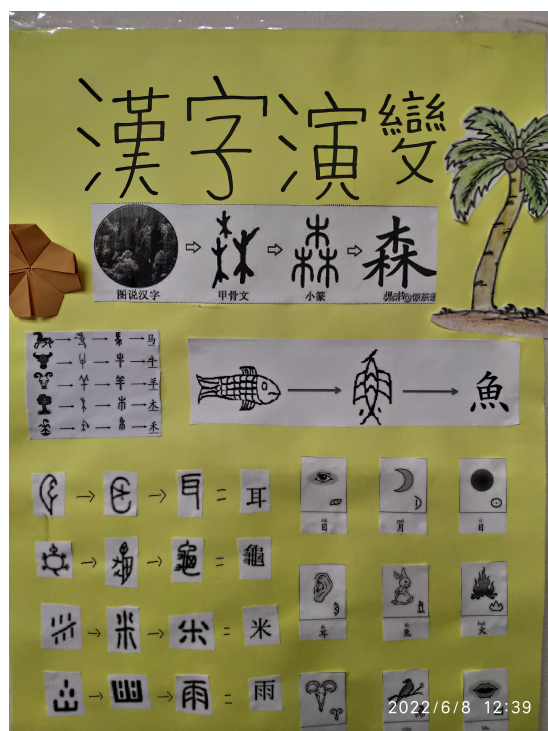 漢字演變
森
图说汉字 甲骨文 小篆
马
牛
羊
木
禾
魚
耳
龜
米
雨
目 月 日
耳 兔 火
2022/6/8 12:39